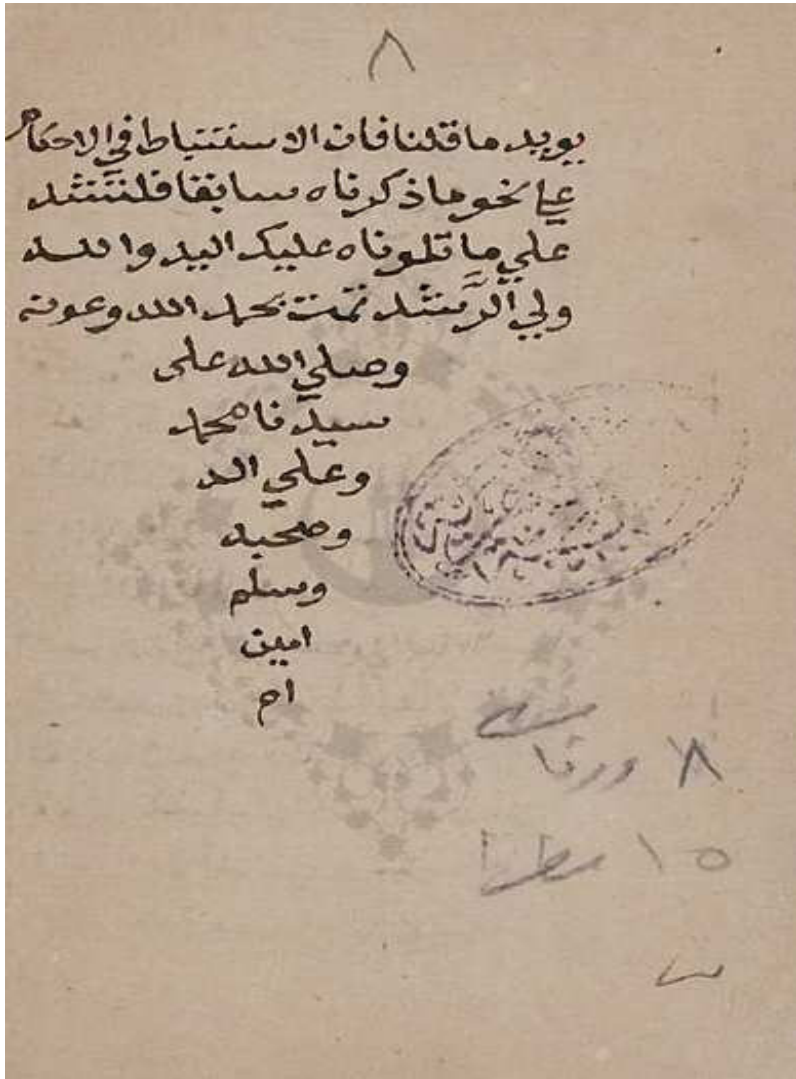 ٨
يويد ما قلنا فان الاستنباط في الاحكام
علي نحو ما ذكرناه سابقا فلتستند
علي ما تلوناه عليك اليد والله
ولي الرَّشد تمت بحمد الله وعونه
وصلي الله على
سيدنا محمد
وعلي اله
وصحبه
وسلم
امين
ام
٨ ورقات
١٥ سطرا